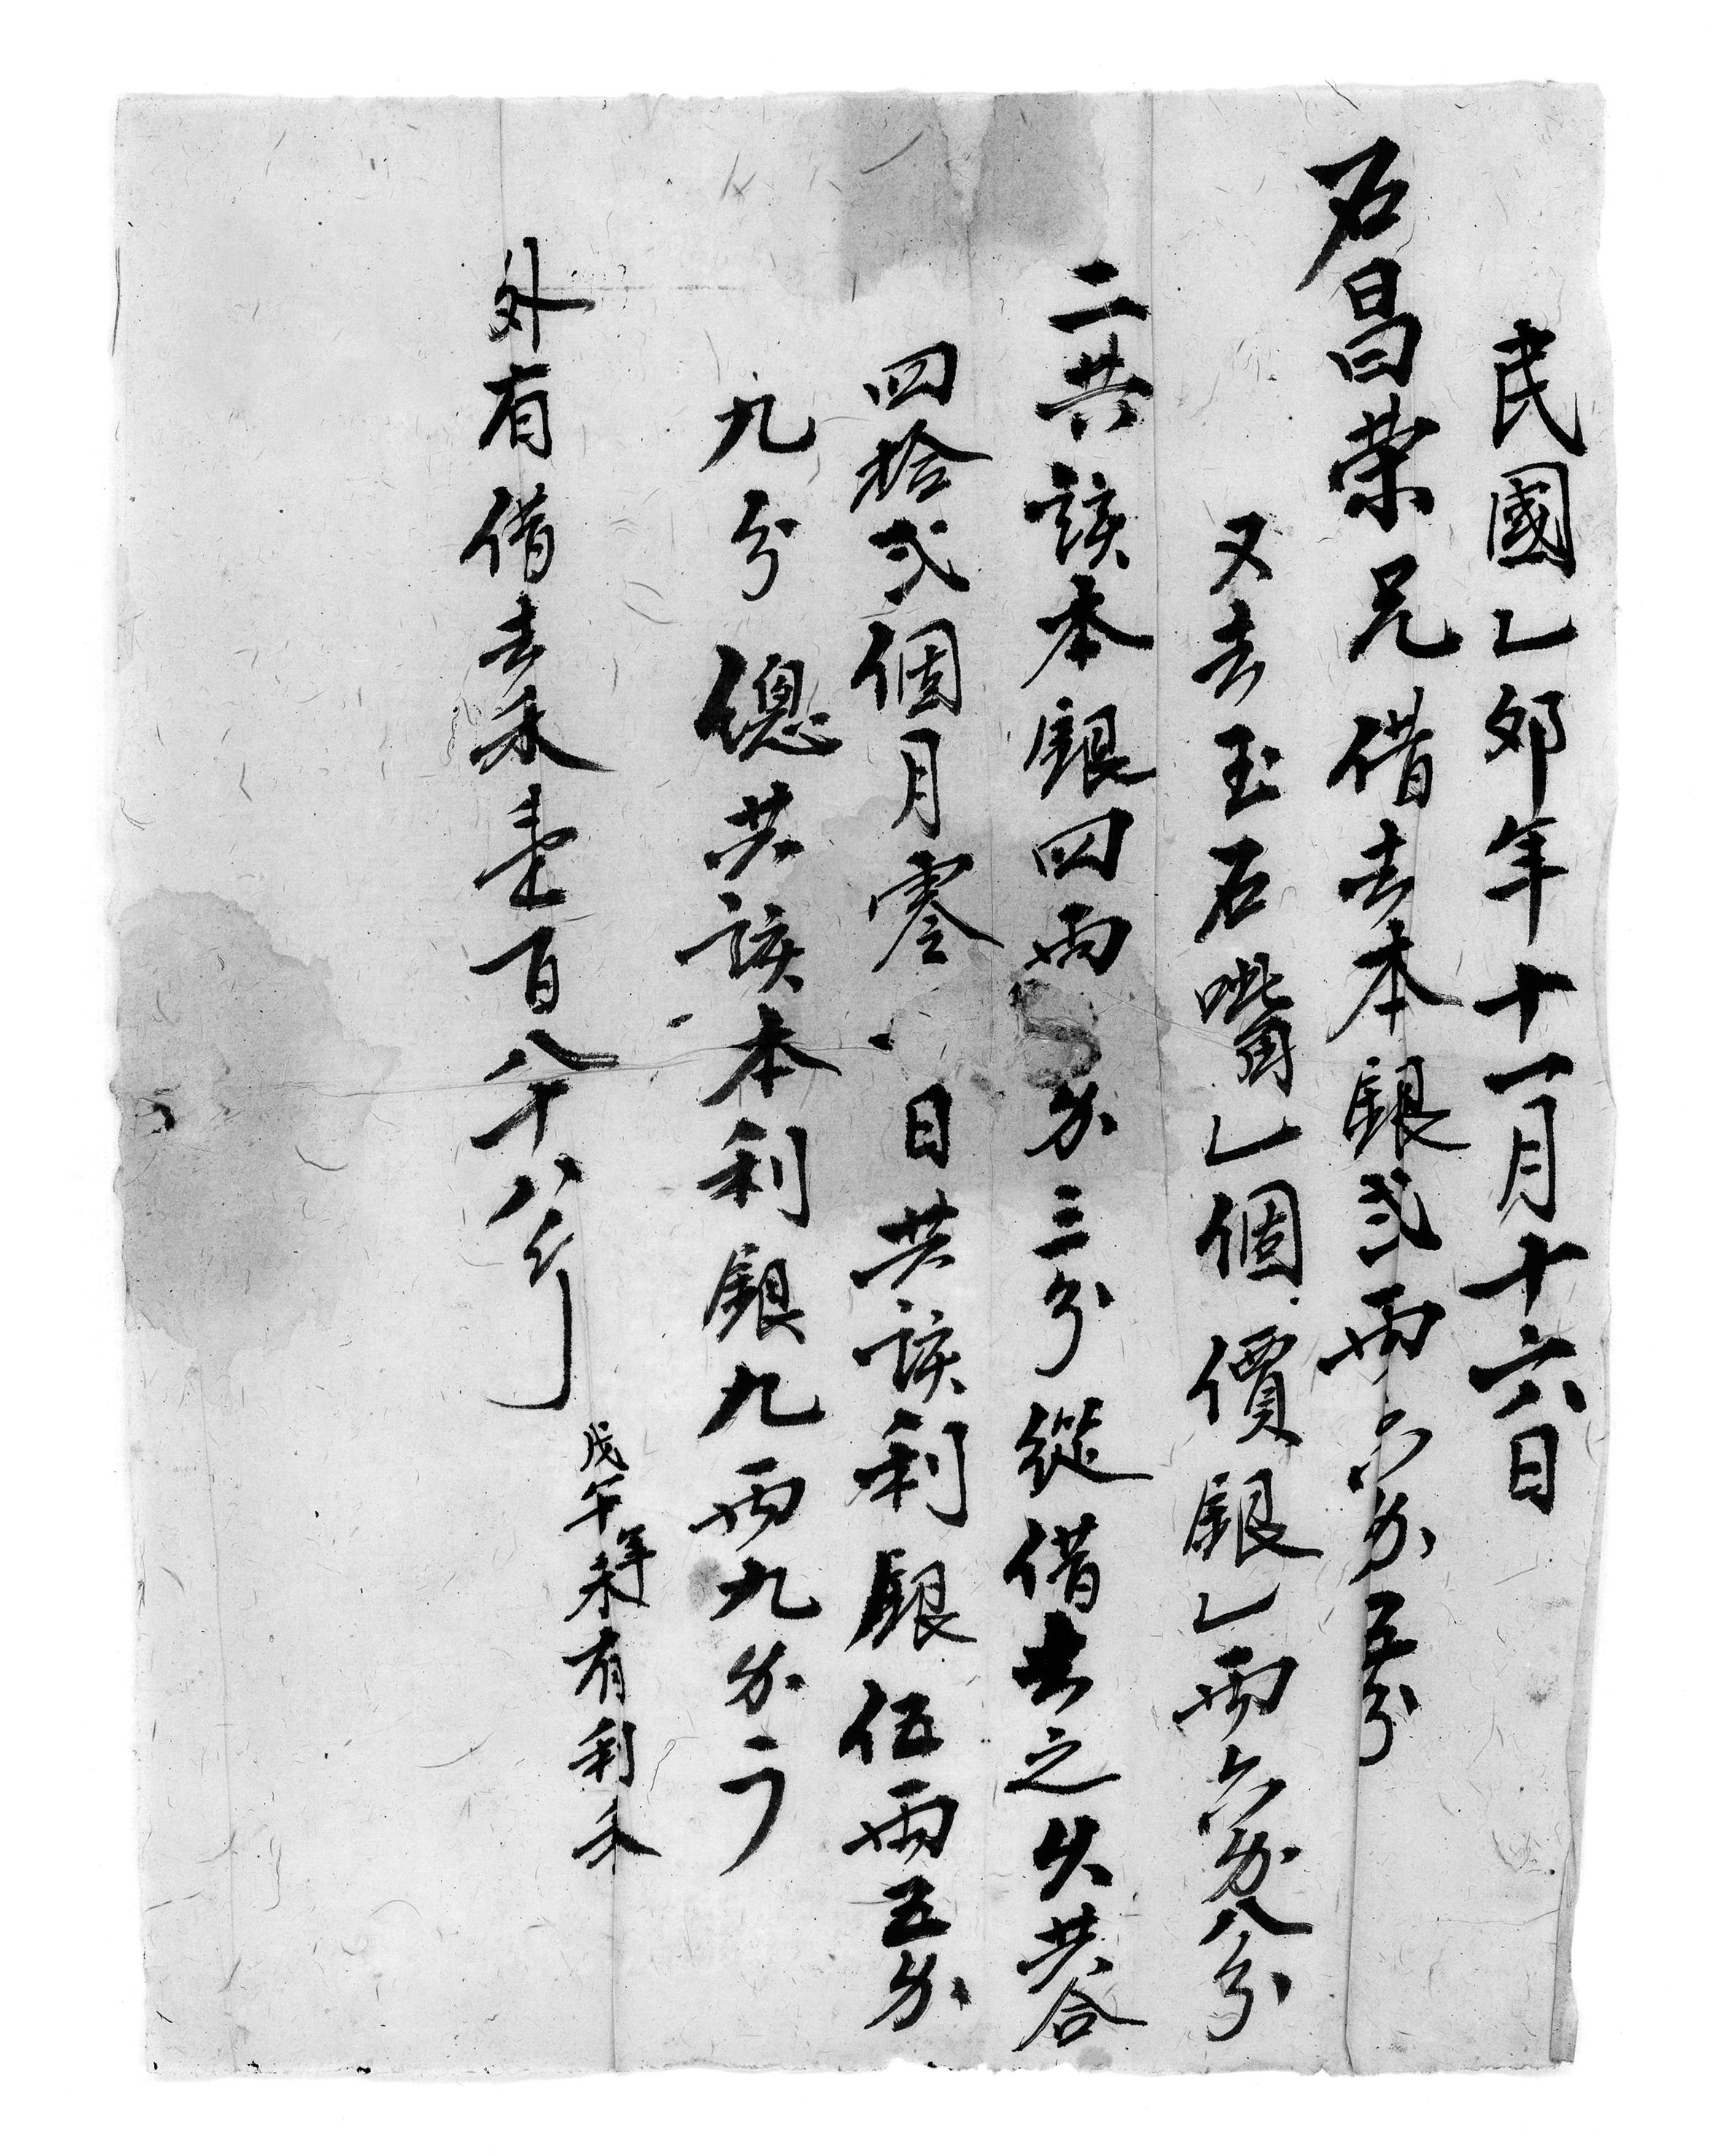 民國乙夘年十一月十六日
石昌荣兄借去本銀弍両六分五分
又去玉石嘴乙個價銀乙両六分八分
二共該本銀四両 分三分從借去之失共合
四拾弍個月零 日共該利銀伍両五分
九分總共該本利銀九両九分二
外有借去禾壹百八十八斤
戊午年未有利禾